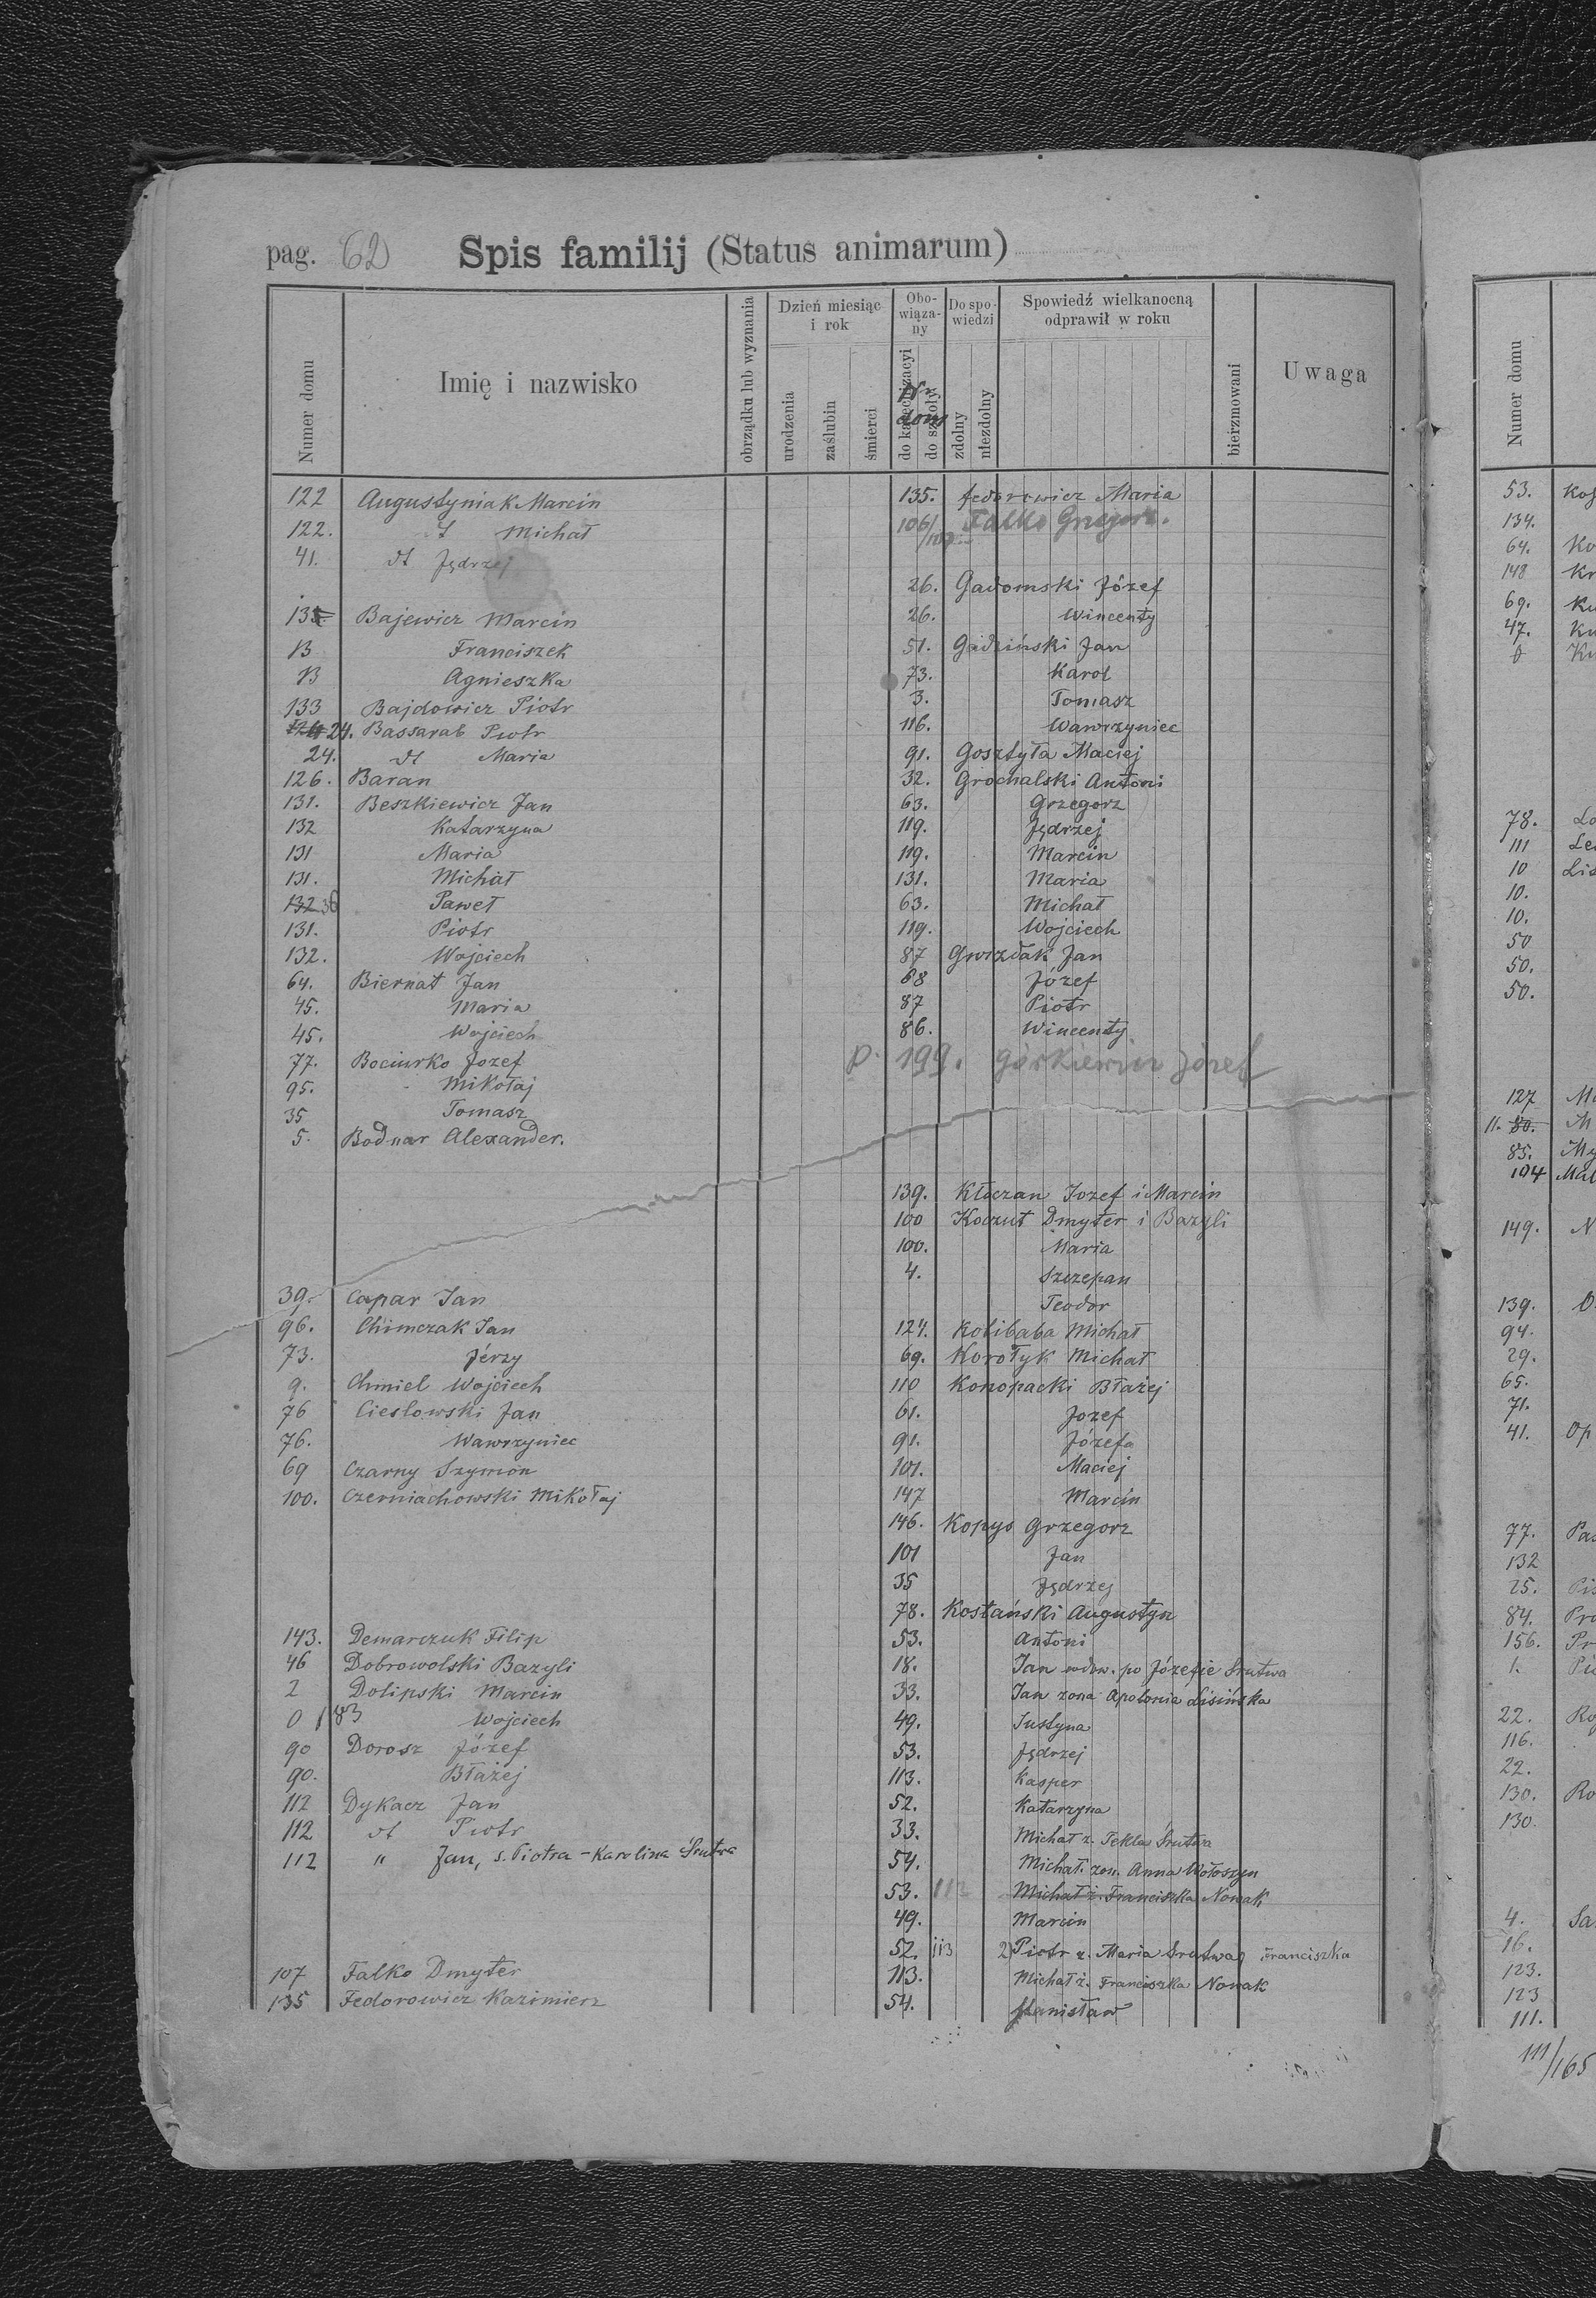 pag. 62 Spis familij (Status animarum)
Numer domu
Imię i nazwisko
obrządku lub wyznania
Dzień miesiąc i rok
urodzenia
zaślubin
śmierci
Obowiązany
do katechizacyi
do szkoły
Nr dom
Do spowiedzi
zdolny
niezdolny
Spowiedź wielkanocną odprawił w roku
bierzmowani
Uwaga
122 Augustyniak Marcin
122. dt Michał
41. dt Jędrzej
135 Bajewicz Marcin
13 Franciszek
13 Agnieszka
133 Bajdowicz Piotr
124 24. Bassarab Piotr
24. dt Maria
126. Baran
131. Beszkiewicz Jan
132 Katarzyna
131 Maria
131. Michał
132 36 Paweł
131. Piotr
132. Wojciech
64. Biernat Jan
45. Maria
45. Wojciech
77. Bociurko Jozef
95. Mikołaj
35 Tomasz
5. Bodnar Alexander.
39. Capar Jan
96. Chimczak Jan
73. Jérzy
9. Chmiel Wojciech
76 Cieslowski Jan
76. Wawrzyniec
69 Czarny Szymon
100. Czerniachowski Mikołaj
143. Demarczuk Filip
46 Dobrowolski Bazyli
2 Dolipski Marcin
0 183 Wojciech
90 Dorosz Józef
90. Błażej
112 Dykacz Jan
112 dt Piotr
112 " Jan, s. Piotra - Karolina Śrutwa
107 Falko Dmyter
135 Fedorowicz Kazimierz
135. Fedorowicz Maria
106/107 Falko Grzegorz.
26. Gadomski Józef
26. Wincenty
51. Gadziński Jan
73. Karol
3. Tomasz
116. Wawrzyniec
91. Gosztyła Maciej
32. Grochalski Antoni
63. Grzegorz
119. Jędrzej
119. Marcin
131. Maria
63. Michał
119. Wojciech
87 Gwizdak Jan
68 Józef
87 Piotr
86. Wincenty
p. 199. Górkiewicz Józef
139. Kłuczan Jozef i Marcin
100 Koczut Dmyter i Bazyli
100. Maria
4. Szczepan
Teodor
124. Kolibaba Michał
69. Korołyk Michał
110 Konopacki Błażej
61. Jozef
91. Józefa
101. Maciej
147 Marcin
146. Kopyś Grzegorz
101 Jan
35 Jędrzej
78. Kostański Augustyn
53. Antoni
18. Jan wdow. po Józefie Śrutwa
33. Jan zona Apolonia Lisińska
49. Justyna
53. Jędrzej
113. Kasper
52. Katarzyna
33. Michał ż. Tekla Śrutwa
54. Michał. zon. Anna Wołoszyn
53. 112 Michał ż. Franciszka Nowak
49. Marcin
52. 113 2) Piotr ż. Maria Śrutwa, Franciszka
113. Michał ż. Franciszka Nowak
54. Stanisław
Numer domu
53.
134.
64. Ko
148 Kr
69. Ku
47. Ku
0 Ku
78. Lo
111
10 Lis
10.
10.
50
50.
50.
127
11. 80. M
85. My
104 Mal
149. N
139. O
94.
29.
65.
71.
41. Op
77. Pas
132
25. Pis
84. Pro
156. Pr
1.
22. Ro
116.
22.
130. Ro
130.
4. Sa
16.
123.
123
111.
111/165